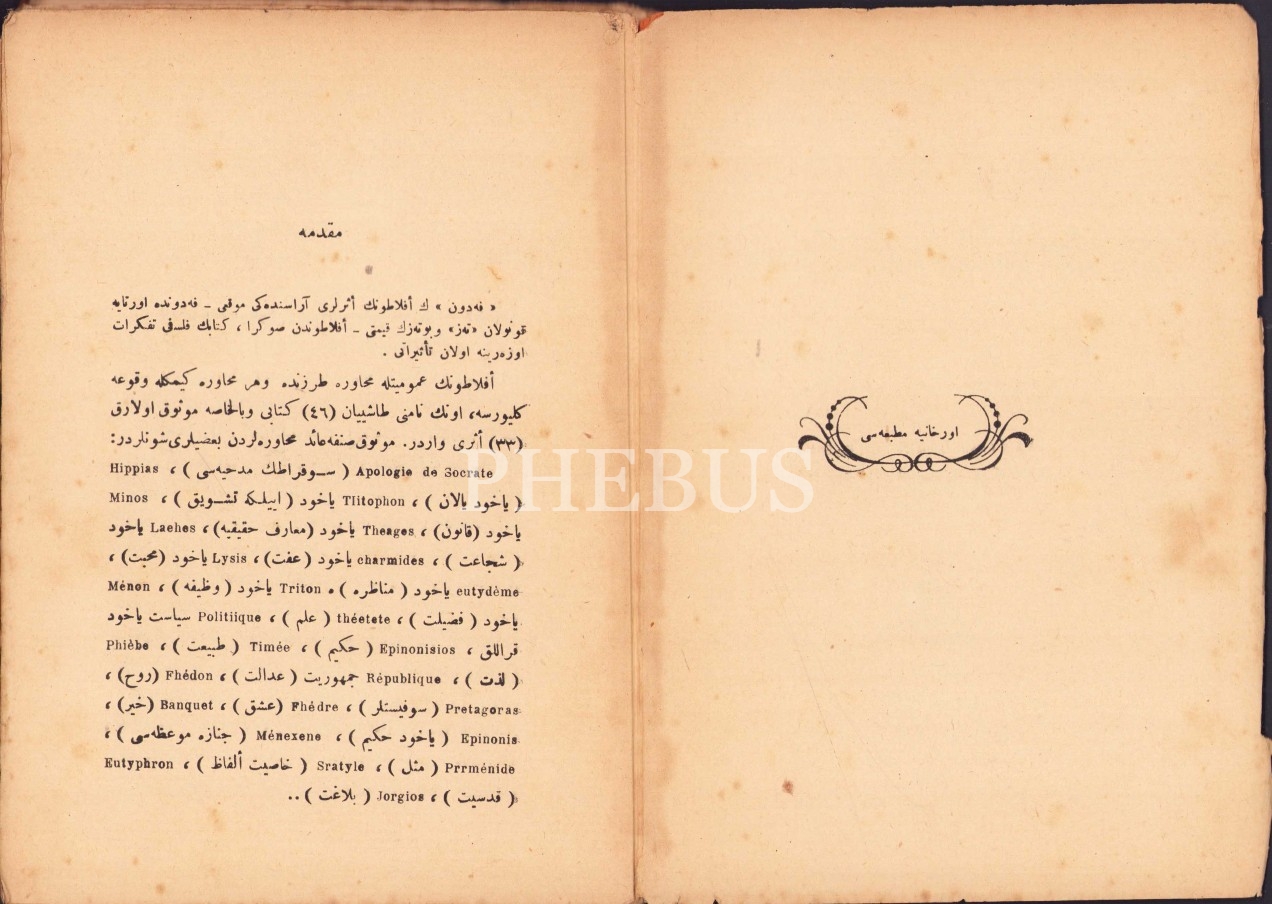 اورخانیه مطبعه‌سی
مقدمه
« فه‌دون » ك أفلاطونك أثرلری آراسنده‌كی موقی ـ فه‌دونده اورتایه
قونولان «ته‌ز» وبوته‌زك قیمتی ـ أفلاطوندن صوكرا ، كتابك فلسفی تفكرات
اوزه‌رینه اولان تأثیراتی .
أفلاطونك عمومیتله محاوره طرزنده وهر محاوره كیمكله وقوعه
كلیورسه، اونك نامنی طاشییان (٤٦) كتابی وبالخاصه موثوق اولارق
(٣٣) أثری واردر. موثوق صنفه‌عائد محاوره‌لردن بعضیلری‌شونلردر:
Apologie de Socrate ( سـوقراطك مدحیه‌سی ) ، Hippias
( یاخود یالان ) ، Tlitophon یاخود ( اییلكه تشـویق ) ، Minos
یاخود (قانون) ، Theages یاخود (معارف حقیقیه)، Laehes یاخود
( شجاعت ) ، charmides یاخود (عفت) ، Lysis یاخود (محبت) ،
eutydème یاخود ( مناظره ) ، Triton یاخود ( وظیفه ) ، Ménon
یاخود ( فضیلت ) ، théetete ( علم ) ، Politiique سیاست یاخود
قراللق ، Epinonisios ( حكیم ) ، Timée ( طبیعت ) ، Phièbe
( لذت ) ، République جمهوریت ( عدالت ) ، Fhédon (روح) ،
Pretagoras ( سوفیستلر ) ، Fhédre (عشق ) ، Banquet (خیر) ،
Epinonis ( یاخود حكیم ) ، Ménexene ( جنازه موعظه‌سی ) ،
Prrménide ( مثل ) ، Sratyle ( خاصیت ألفاظ ) ، Eutyphron
( قدسیت ) ، Jorgios ( بلاغت ) ..
PHEBUS